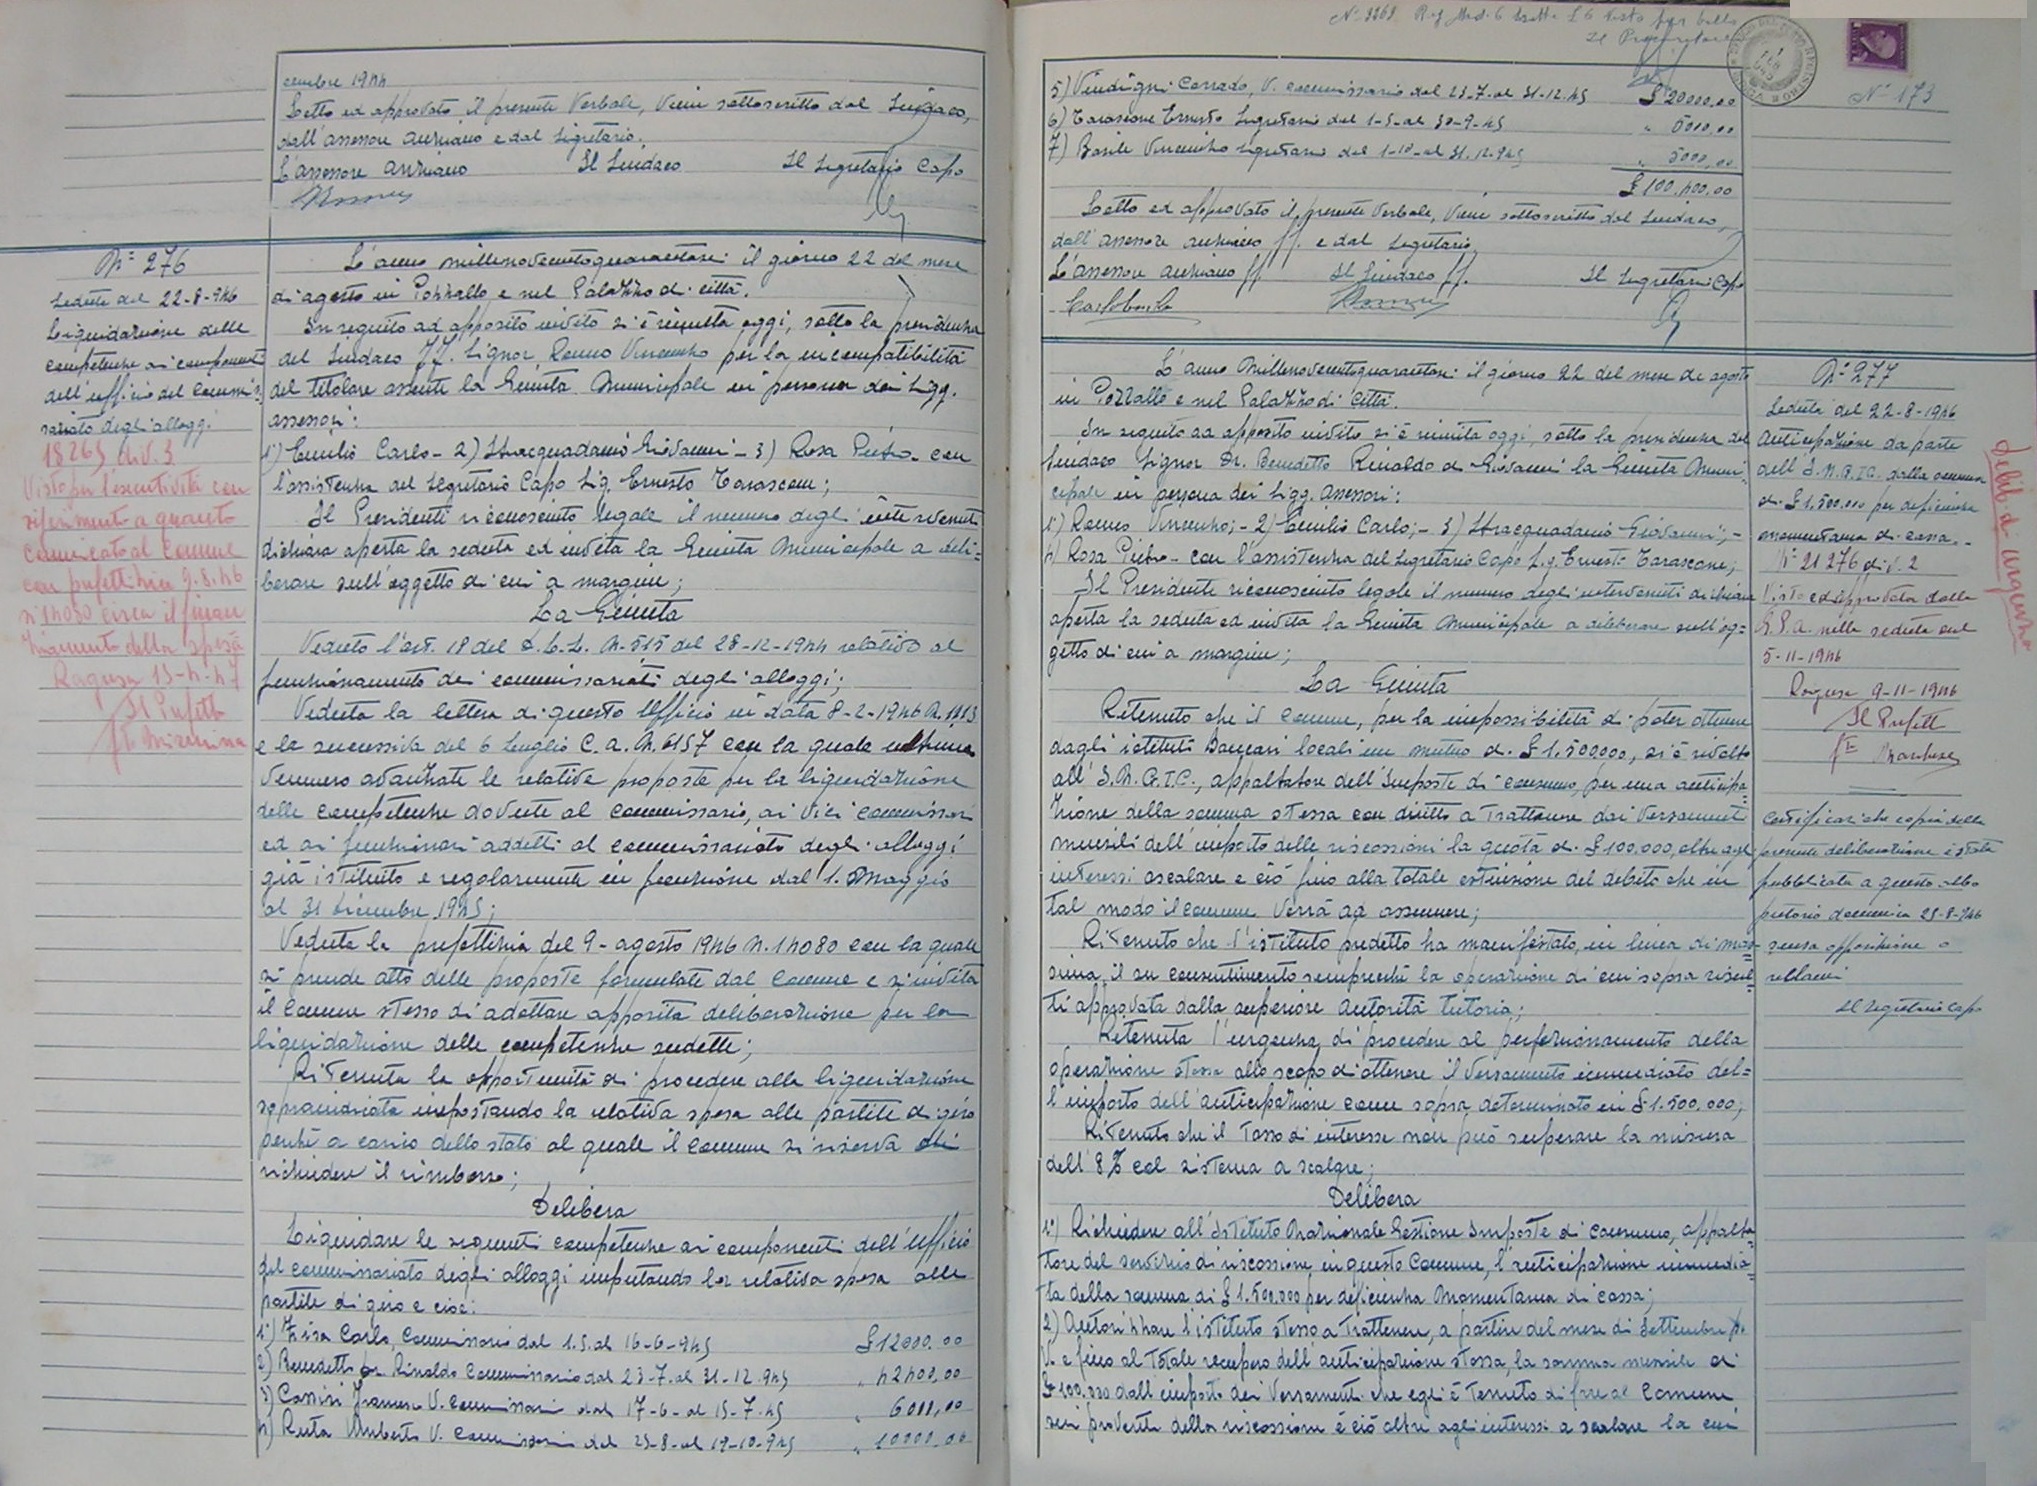 cembre 1944
Letto ed approvato il presente Verbale, viene sottoscritto dal Sindaco,
dall'assessore anziano e dal Segretario.
L'assessore anziano Il Sindaco Il Segretario Capo
N° 276
Seduta del 22-8-946
Liquidazione delle
competenze ai componenti
dell'ufficio del Commis
sariato degli alloggi.
18265 div. 3
Visto per l'esecutività con
riferimento a quanto
comunicato al Comune
con prefettizia 9.8.46
n. 14080 circa il finan
ziamento della spesa
Ragusa 15-4-47
Il Prefetto
L'anno millenovecentoquarantasei il giorno 22 del mese
di agosto in Pozzallo e nel Palazzo di città.
In seguito ad apposito invito si è riunita oggi, sotto la presidenza
del Sindaco ff. Signor Romeo Vincenzo per la incompatibilità
del titolare assente la Giunta Municipale in persona dei Sigg.
assessori:
1°) Emilio Carlo - 2) Stracquadanio Giovanni - 3) Rosa Pietro - con
l'assistenza del Segretario Capo Sig. Ernesto Tarascone;
Il Presidente riconosciuto legale il numero degli intervenuti
dichiara aperta la seduta ed invita la Giunta Municipale a deli-
berare sull'oggetto di cui a margine;
La Giunta
Veduto l'art. 18 del D.L.L. N. 515 del 28-12-1944 relativo al
funzionamento dei commissariati degli alloggi;
Veduta la lettera di questo Ufficio in data 8-2-1946 N. 1113
e la successiva del 6 Luglio c.a. N. 6157 con la quale ultima
vennero avanzate le relative proposte per la liquidazione
delle competenze dovute al commissario, ai Vici commissari
ed ai funzionari addetti al commissariato degli alloggi
già istituito e regolarmente in funzione dal 1. Maggio
al 31 dicembre 1945;
Veduta la prefettizia del 9 - agosto 1946 N. 14080 con la quale
si prende atto delle proposte formulate dal Comune e si invita
il Comune stesso di adottare apposita deliberazione per la
liquidazione delle competenze sudette;
Ritenuta la opportunità di procedere alla liquidazione
sopraindicata impostando la relativa spesa alle partite di giro
perché a carico dello stato al quale il Comune si riserva di
richiedere il rimborso;
Delibera
Liquidare le seguenti competenze ai componenti dell'Ufficio
del commissariato degli alloggi imputando la relativa spesa alle
partite di giro e cioè:
1°) Carlo, Commissario dal 1.5. al 16-6-945 £ 12000.00
2) Benedetto Dr Rinaldo Commissario dal 23-7. al 31-12.945 " 42400,00
3) Cassisi Francesco V. Commissario dal 17-6- al 15-7.45 " 6000,00
4) Ruta Umberto V. Commissario dal 23-8- al 19-10-945 " 10000.00
N° 173
5) Vindigni Corrado, V. commissario dal 23-7. al 31-12.45 £ 20000.00
6) Tarascone Ernesto Segretario dal 1-5- al 30-9-45 " 5000,00
7) Basile Vincenzo Segretario dal 1-10- al 31.12.945 " 5000,00
£ 100.400,00
Letto ed approvato il presente Verbale, viene sottoscritto dal Sindaco,
dall'assessore anziano ff. e dal Segretario
L'assessore anziano ff. Il Sindaco ff. Il Segretario Capo
L'anno Millenovecentoquarantasei il giorno 22 del mese di agosto
in Pozzallo e nel Palazzo di Città.
In seguito ad apposito invito si è riunita oggi, sotto la presidenza del
Sindaco Signor Dr. Benedetto Rinaldo di Giovanni la Giunta Muni-
cipale in persona dei Sigg. assessori:
1°) Romeo Vincenzo; - 2) Emilio Carlo; - 3) Stracquadanio Giovanni; -
4) Rosa Pietro - con l'assistenza del Segretario Capo Sig. Ernesto Tarascone;
Il Presidente riconosciuto legale il numero degli intervenuti dichiara
aperta la seduta ed invita la Giunta Municipale a deliberare sull'og=
getto di cui a margine;
La Giunta
Ritenuto che il Comune, per la impossibilità di poter ottenere
dagli istituti Bancari locali un mutuo di £ 1.500.000, si è rivolto
all'I.N.G.I.C., appaltatore dell'Imposte di consumo, per una anticipa=
zione della somma stessa con diritto a trattenere dai versamenti
mensili dell'importo delle riscossioni la quota di £ 100.000, oltre agli
interessi a scalare e ciò fino alla totale estinzione del debito che in
tal modo il comune verrà ad assumere;
Ritenuto che l'istituto predetto ha manifestato, in linea di mas=
sima, il suo consentimento semprecché la operazione di cui sopra risul=
ti approvata dalla superiore autorità tutoria;
Ritenuta l'urgenza di procedere al perfezionamento della
operazione stessa allo scopo di ottenere il versamento immediato del=
l'importo dell'anticipazione come sopra determinato in £ 1.500.000;
Ritenuto che il tasso di interesse non può superare la misura
dell'8% col sistema a scalare;
Delibera
1°) Richiedere all'Istituto Nazionale Gestione Imposte di Consumo, appalta=
tore del servizio di riscossione in questo Comune, l'anticipazione immedia=
ta della somma di £ 1.500.000 per deficienza momentanea di cassa;
2) Autorizzare l'istituto stesso a trattenere, a partire del mese di Settembre p.
v. e fino al totale recupero dell'anticipazione stessa, la somma mensile di
£ 100.000 dall'importo dei versamenti che egli è tenuto di fare al Comune
sui proventi della riscossione e ciò oltre agli interessi a scalare la cui
N° 277
Seduta del 22-8-1946
Anticipazione da parte
dell'I.N.G.I.C. della somma
di £ 1.500.000 per deficienza
momentanea di cassa. -
N° 21276 div. 2
Vista ed approvata dalla
G.P.A. nella seduta del
5-11-1946
Ragusa 9-11-1946
Il Prefetto
Certificasi che copia della
presente deliberazione è stata
pubblicata a questo albo
pretorio domenica 25-8-946
senza opposizione o
reclami
Il Segretario Capo